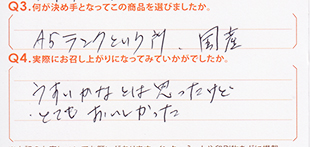 Q3.何が決め手となってこの商品を選びましたか。
A5ランクという所、国産
Q4.実際にお召し上がりになってみていかがでしたか。
うすいかなとは思ったけど
とてもおいしかった